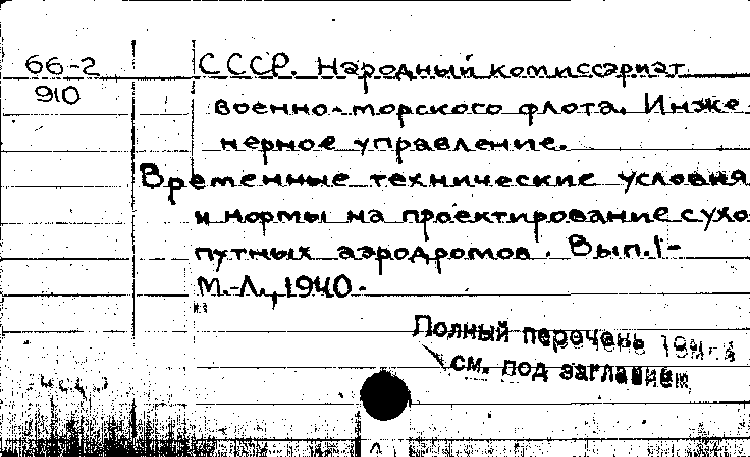 66-2
910
СССР. Народный комиссариат
военно-морского флота. Инже-
нерное управление.
Временные технические условия
и нормы на проектирование сухо-
путных аэродромов. Вып. 1-
М.-Л., 1940-
Полный перечень
см. под заглавием